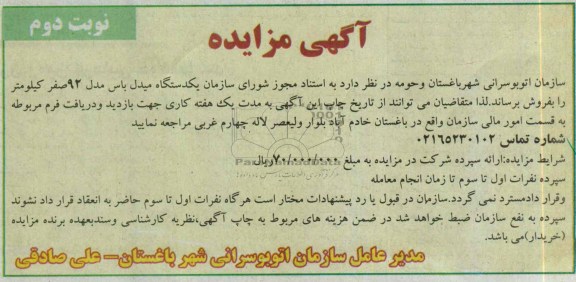 نوبت دوم
آگهی مزایده
سازمان اتوبوسرانی شهرباغستان وحومه در نظر دارد به استناد مجوز شورای سازمان یکدستگاه میدل باس مدل ۹۲صفر کیلومتر
را بفروش برساند.لذا متقاضیان می توانند از تاریخ چاپ این آگهی به مدت یک هفته کاری جهت بازدید ودریافت فرم مربوطه
به قسمت امور مالی سازمان واقع در باغستان خادم آباد بلوار ولیعصر لاله چهارم غربی مراجعه نمایید
شماره تماس ۰۲۱۶۵۲۳۰۱۰۲
شرایط مزایده:ارائه سپرده شرکت در مزایده به مبلغ ۷۰/۰۰۰/۰۰۰ریال
سپرده نفرات اول تا سوم تا زمان انجام معامله
وقرار دادمسترد نمی گردد.سازمان در قبول یا رد پیشنهادات مختار است هرگاه نفرات اول تا سوم حاضر به انعقاد قرار داد نشوند
سپرده به نفع سازمان ضبط خواهد شد در ضمن هزینه های مربوط به چاپ آگهی،نظریه کارشناسی وسندبعهده برنده مزایده
(خریدار)می باشد.
مدیر عامل سازمان اتوبوسرانی شهر باغستان- علی صادقی